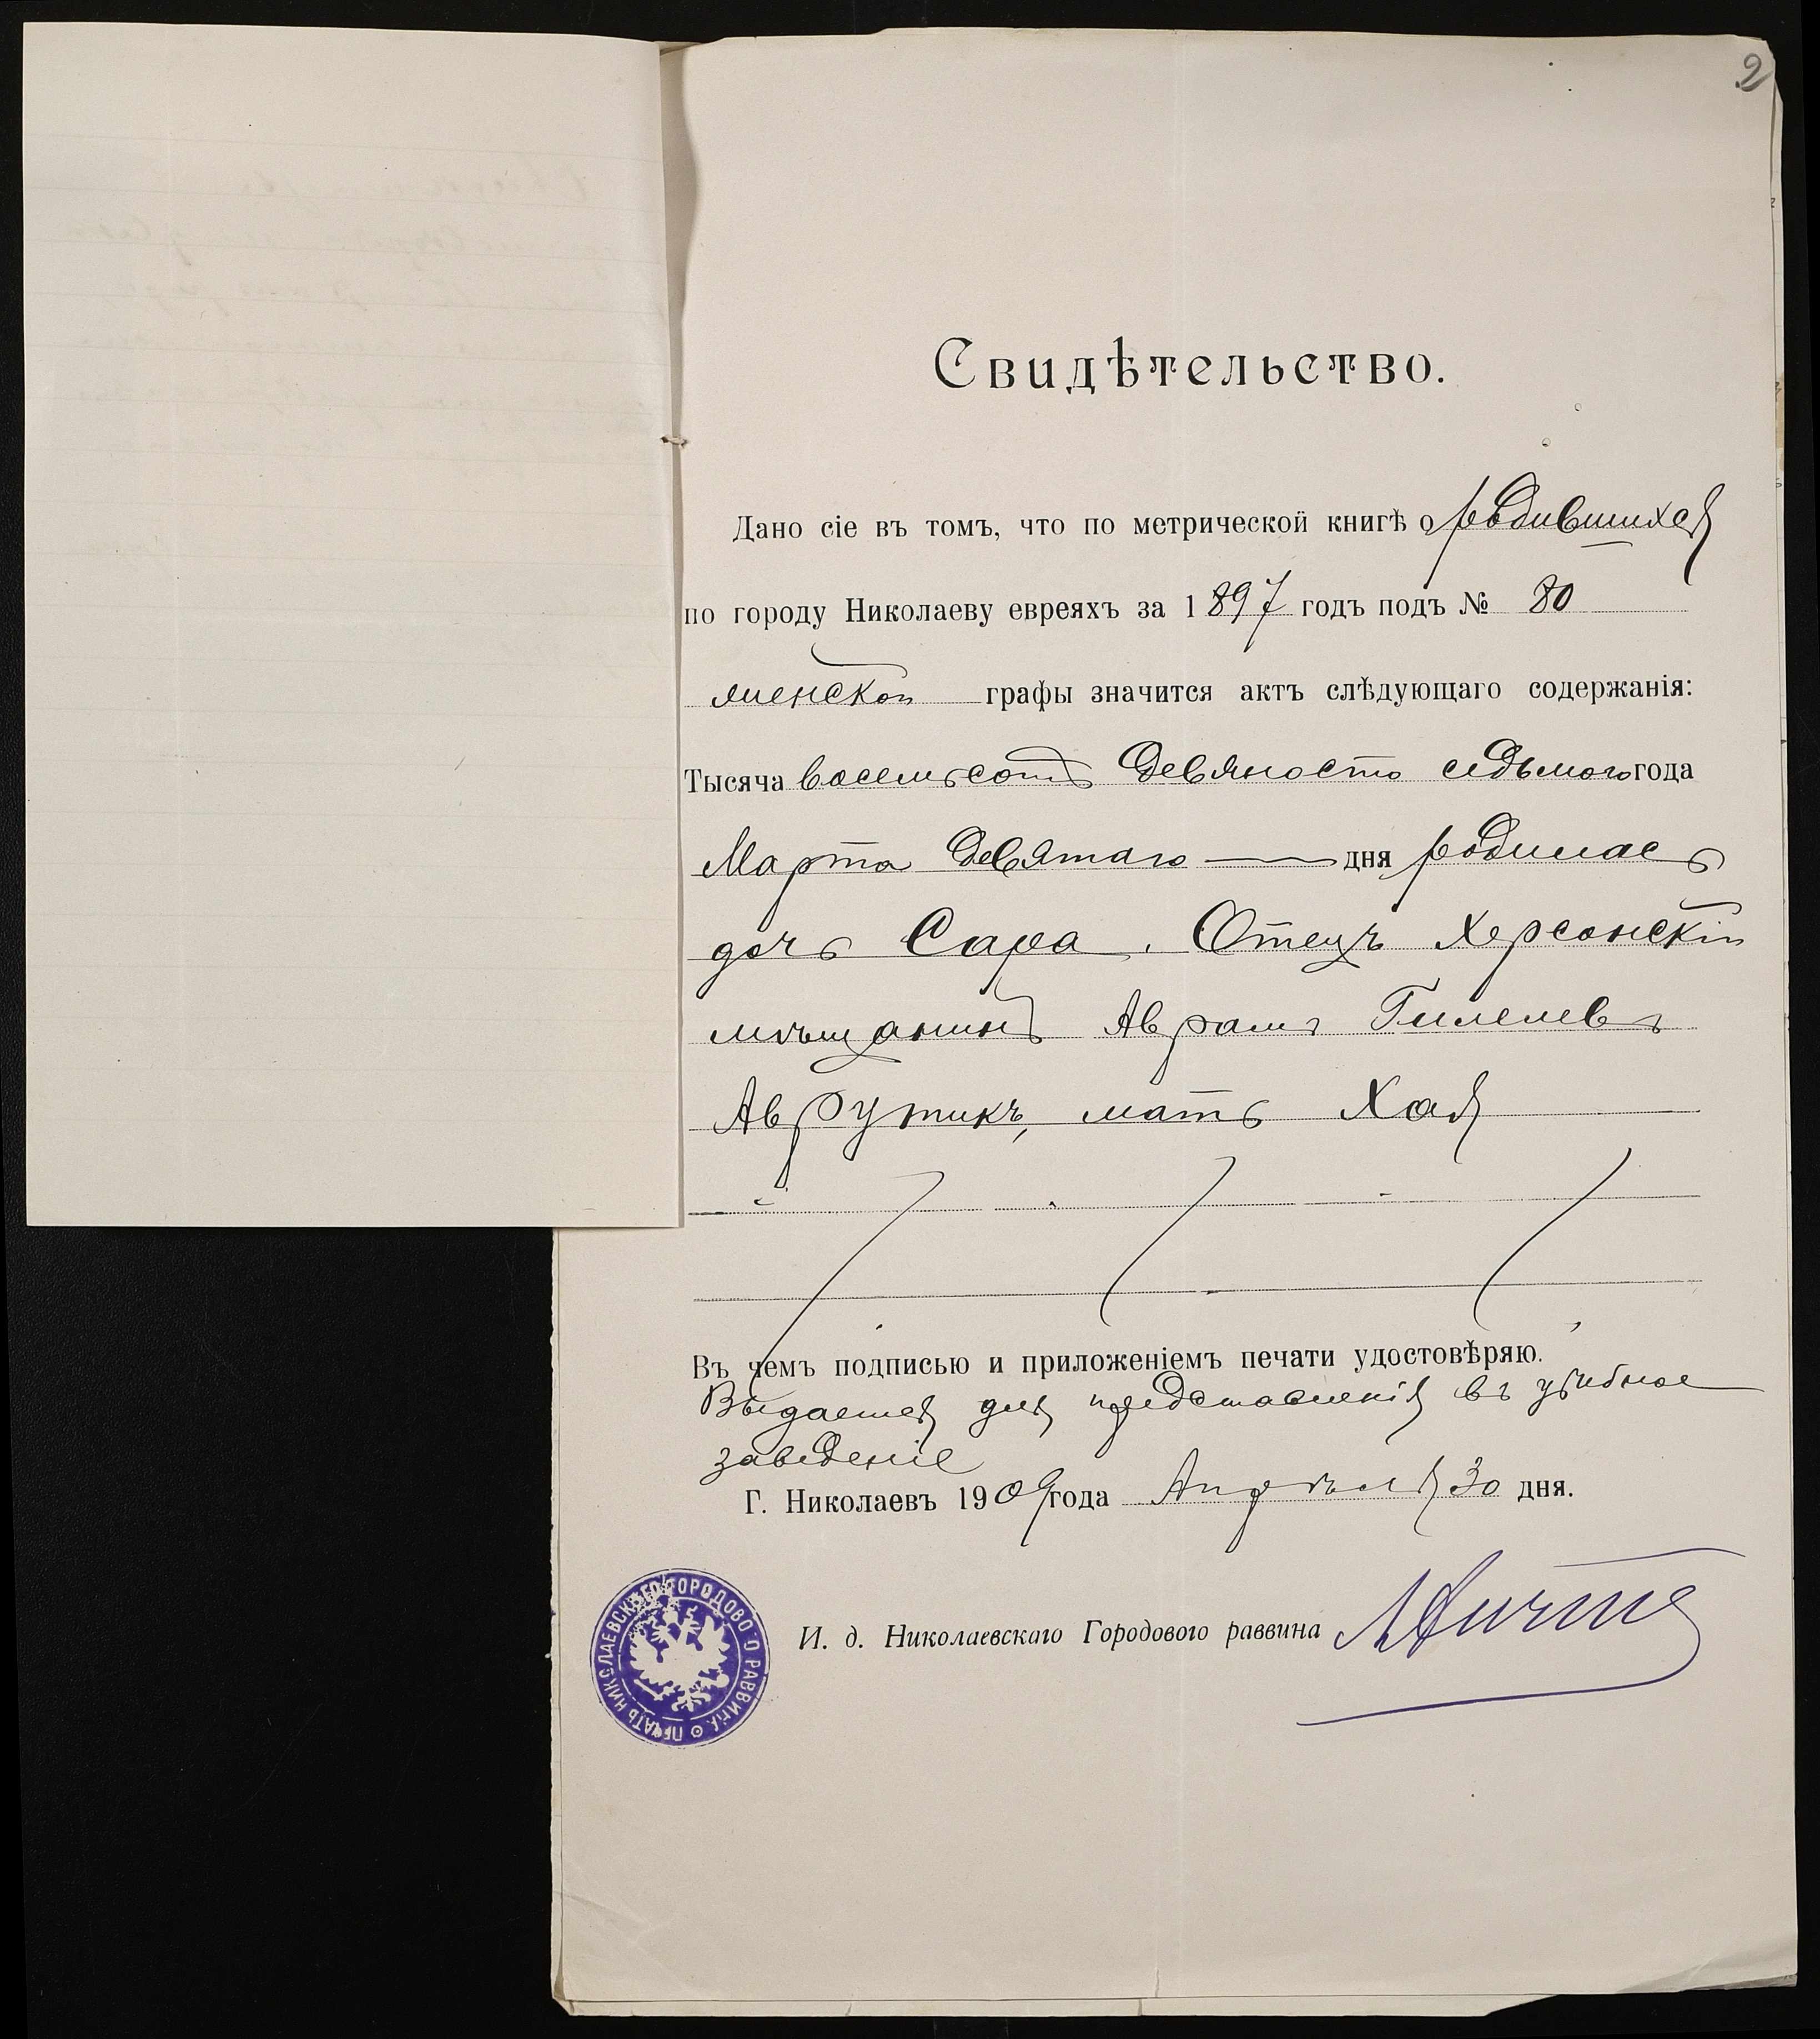 2
Свидѣтельство.
Дано сіе въ томъ, что по метрической книгѣ о родившихся
по городу Николаеву евреяхъ за 1897 годъ подъ № 80
женской графы значится актъ слѣдующаго содержанія:
Тысяча восемьсотъ девяносто седьмого года
Марта девятаго дня родилась
дочь Сара. Отецъ Херсонскій
мѣщанинъ Аврамъ Гилелевъ
Аврутикъ, мать Хая
Въ чемъ подписью и приложеніемъ печати удостовѣряю.
Выдается для представленія въ учебное
заведеніе
Г. Николаевъ 1909 года Апрѣля 30 дня.
И. д. Николаевскаго Городового раввина
ПЕЧАТЬ НИКОЛАЕВСКАГО ГОРОДОВОГО РАВВИНА